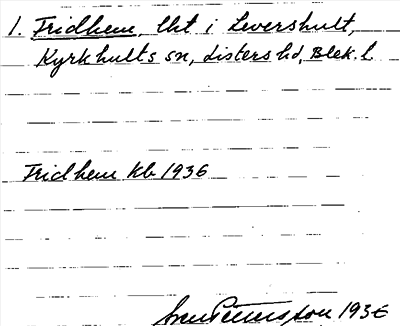 1. Fridhem, lht i Levershult,
Kyrkhults sn, Listers hd, Blek. l.
Fridhem kb 1936
Pettersson 1936